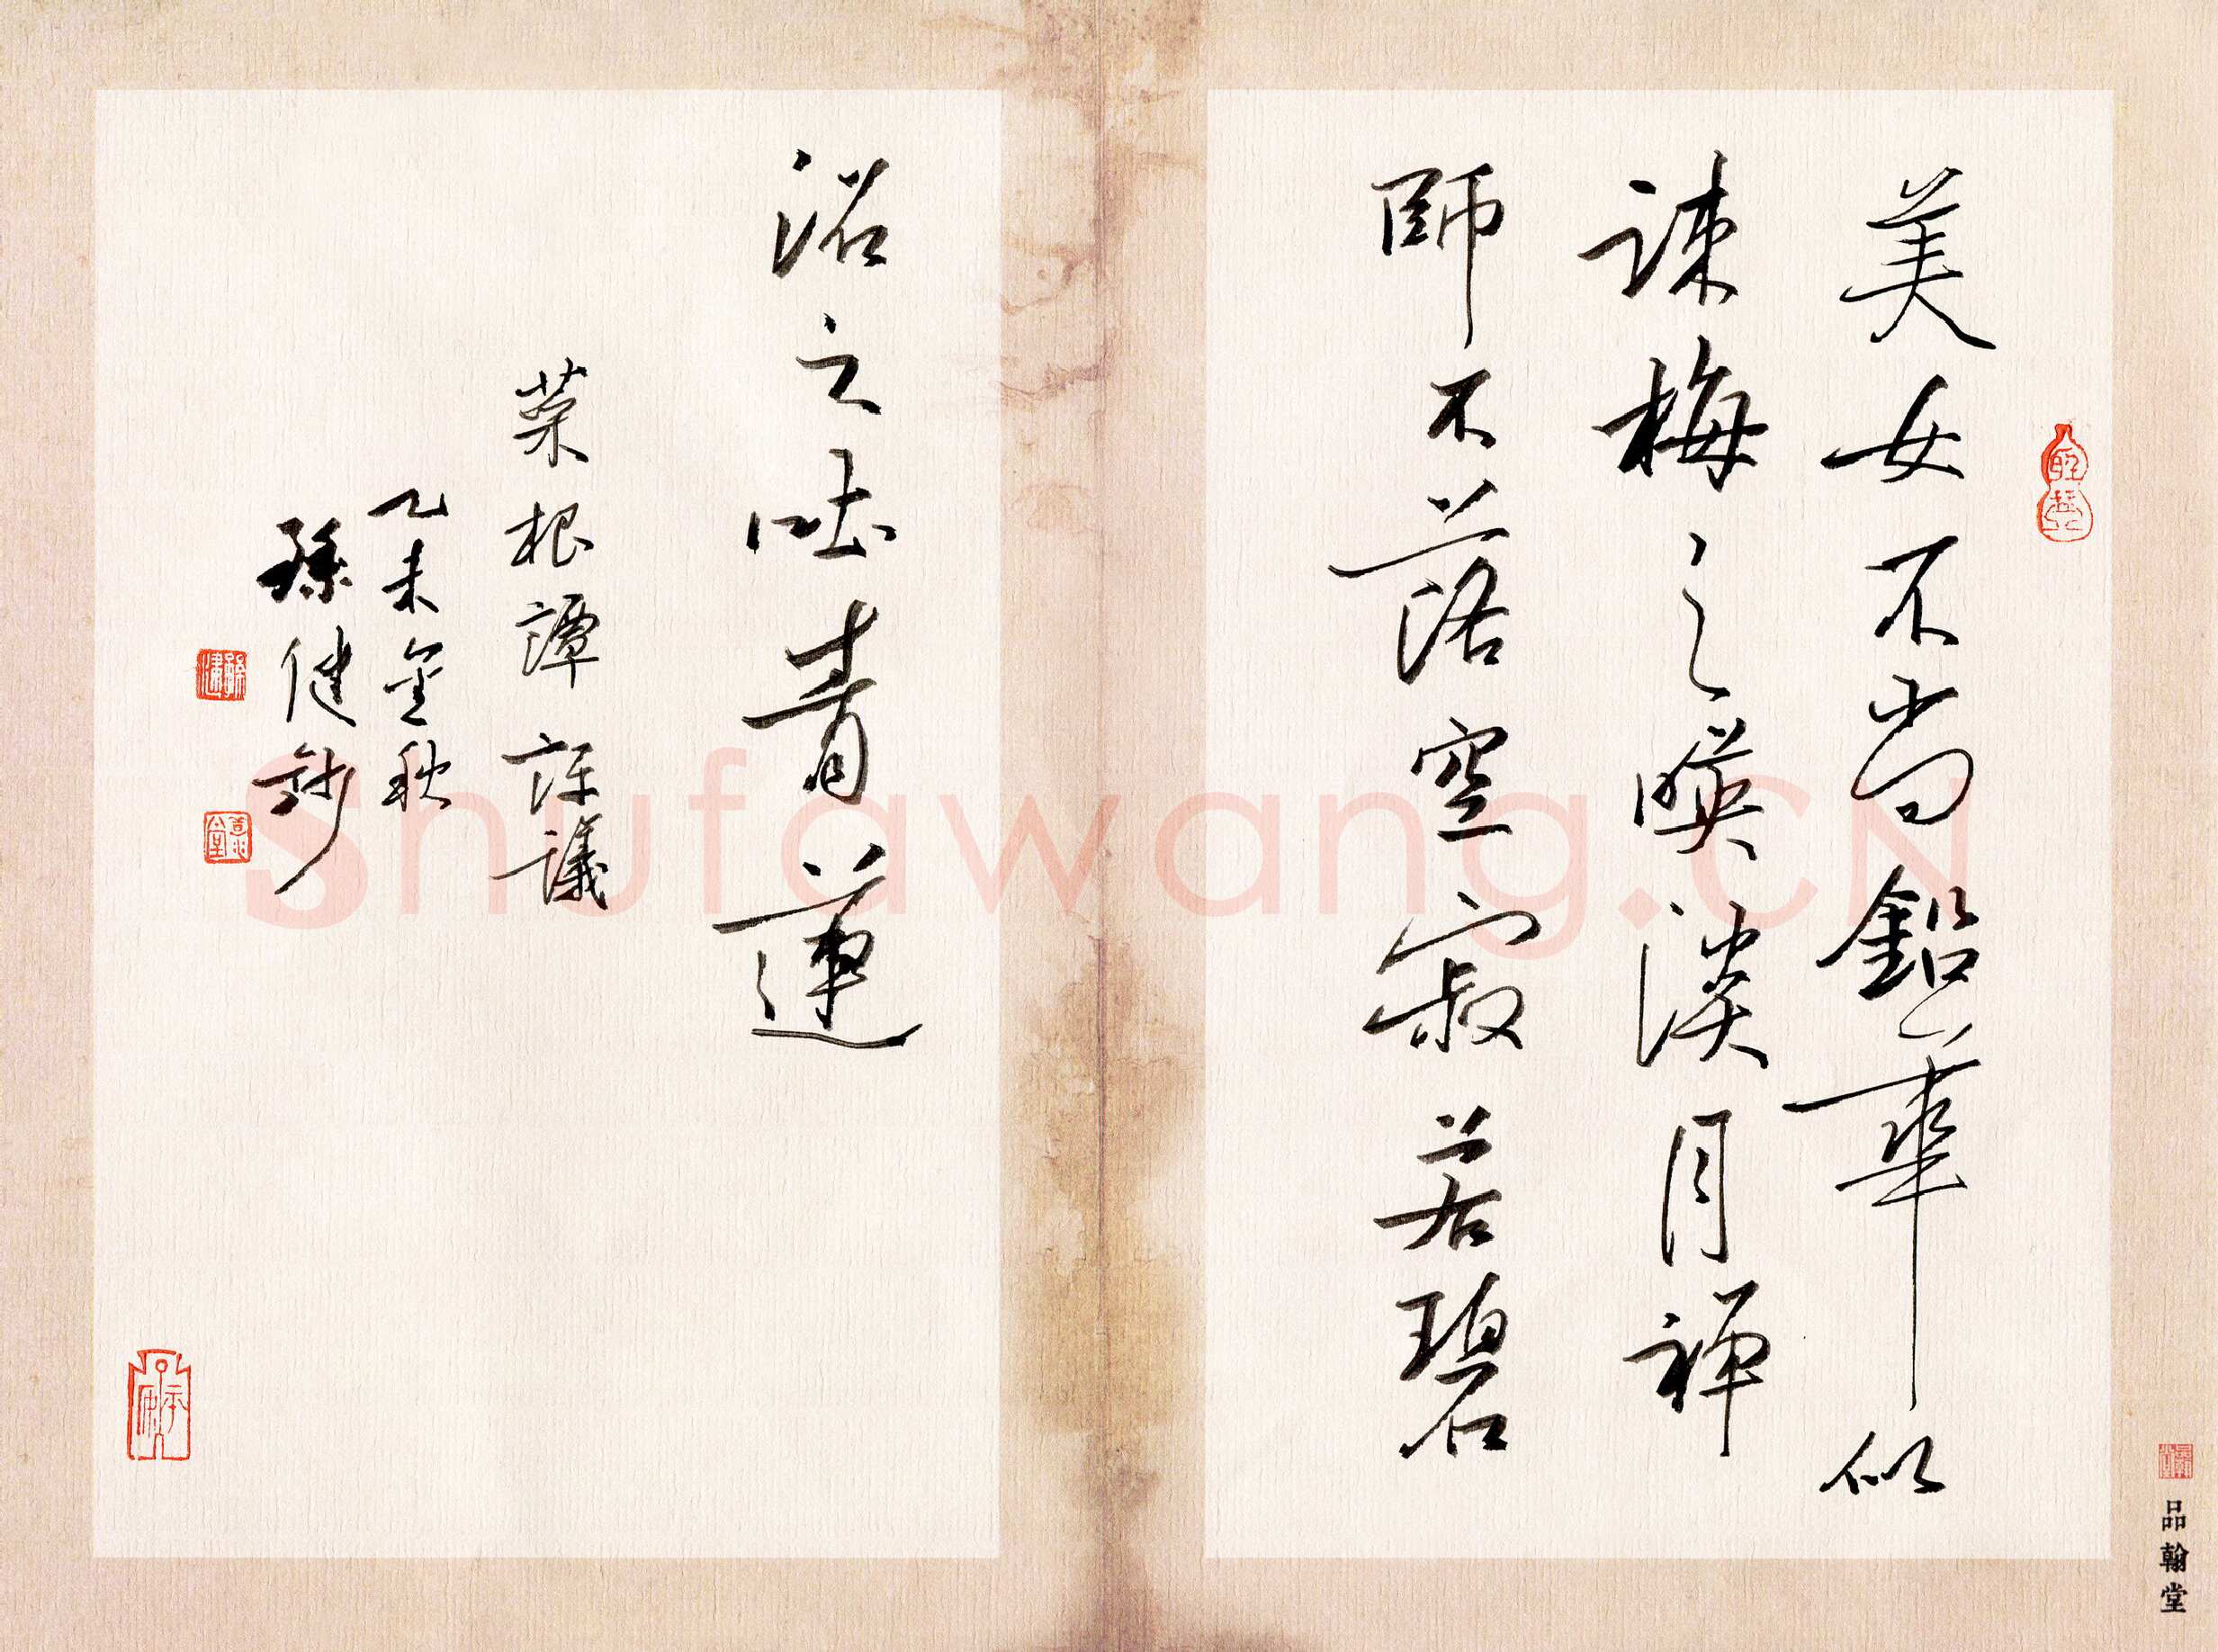 美女不尚鉛華似
疎梅之暎淡月禪
師不落空寂若碧
沼之吐青蓮
菜根譚評議
乙未金秋
孫健鈔
品翰堂
Shufawang.CN